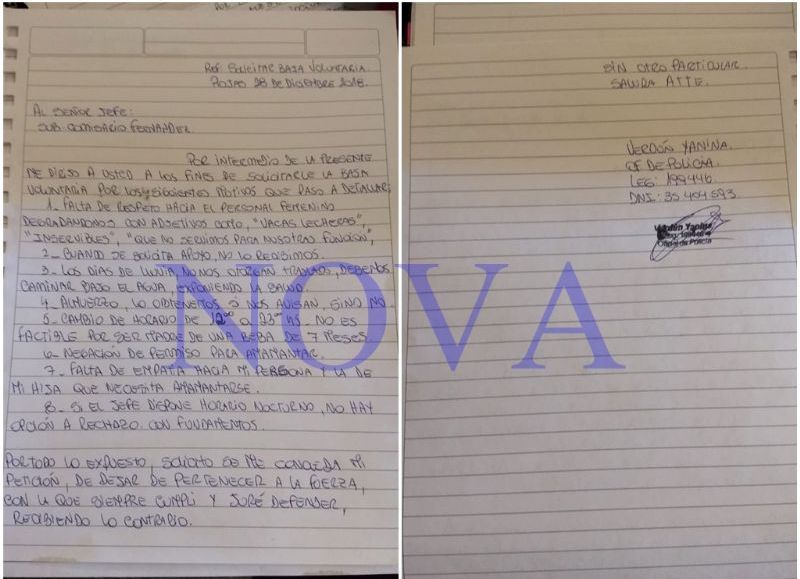 Ref: Solicitar BAJA VOLUNTARIA.
ROJAS 28 DE DICIEMBRE 2018.
AL SEÑOR JEFE:
SUB COMISARIO FERNANDEZ.
POR INTERMEDIO DE LA PRESENTE
ME DIRIJO A USTED A LOS FINES DE SOLICITARLE LA BAJA
VOLUNTARIA POR LOS SIGUIENTES MOTIVOS QUE PASO A DETALLAR;
1. FALTA DE RESPETO HACIA EL PERSONAL FEMENINO
DEGRADANDONOS CON ADJETIVOS COMO, "VACAS LECHERAS",
"INSERVIBLES", "QUE NO SERVIMOS PARA NUESTRAS FUNCIÓN",
2_ CUANDO SE SOLICITA APOYO, NO LO RECIBIMOS.
3_ LOS DIAS DE LLUVIA, NO NOS OTORGAN TRASLADO, DEBEMOS
CAMINAR BAJO EL AGUA, EXPONIENDO LA SALUD.
4_ ALMUERZO, LO OBTENEMOS SI NOS AVISAN, SINO NO.
5_ CAMBIO DE HORARIO DE 12⁰⁰ a 23⁰⁰ HS_ NO ES
FACTIBLE POR SER MADRE DE UNA BEBA DE 7 MESES.
6_ NEGACION DE PERMISO PARA AMAMANTAR.
7_ FALTA DE EMPATIA HACIA MI PERSONA Y LA DE
MI HIJA QUE NECESITA AMAMANTARSE.
8_ SI EL JEFE DISPONE HORARIO NOCTURNO, NO HAY
OPCIÓN A RECHAZO CON FUNDAMENTOS.
POR TODO LO EXPUESTO, SOLICITO SE ME CONCEDA MI
PETICIÓN, DE DEJAR DE PERTENECER A LA FUERZA,
CON LA QUE SIEMPRE CUMPLI Y JURÉ DEFENDER,
RECIBIENDO LO CONTRARIO.
SIN OTRO PARTICULAR.
SALUDA ATTE.
VERDÓN YANINA.
OF DE POLICÍA.
LEG: 199446.
DNI: 35 404 593
Verdón Yanina
Oficial de Policía
NOVA